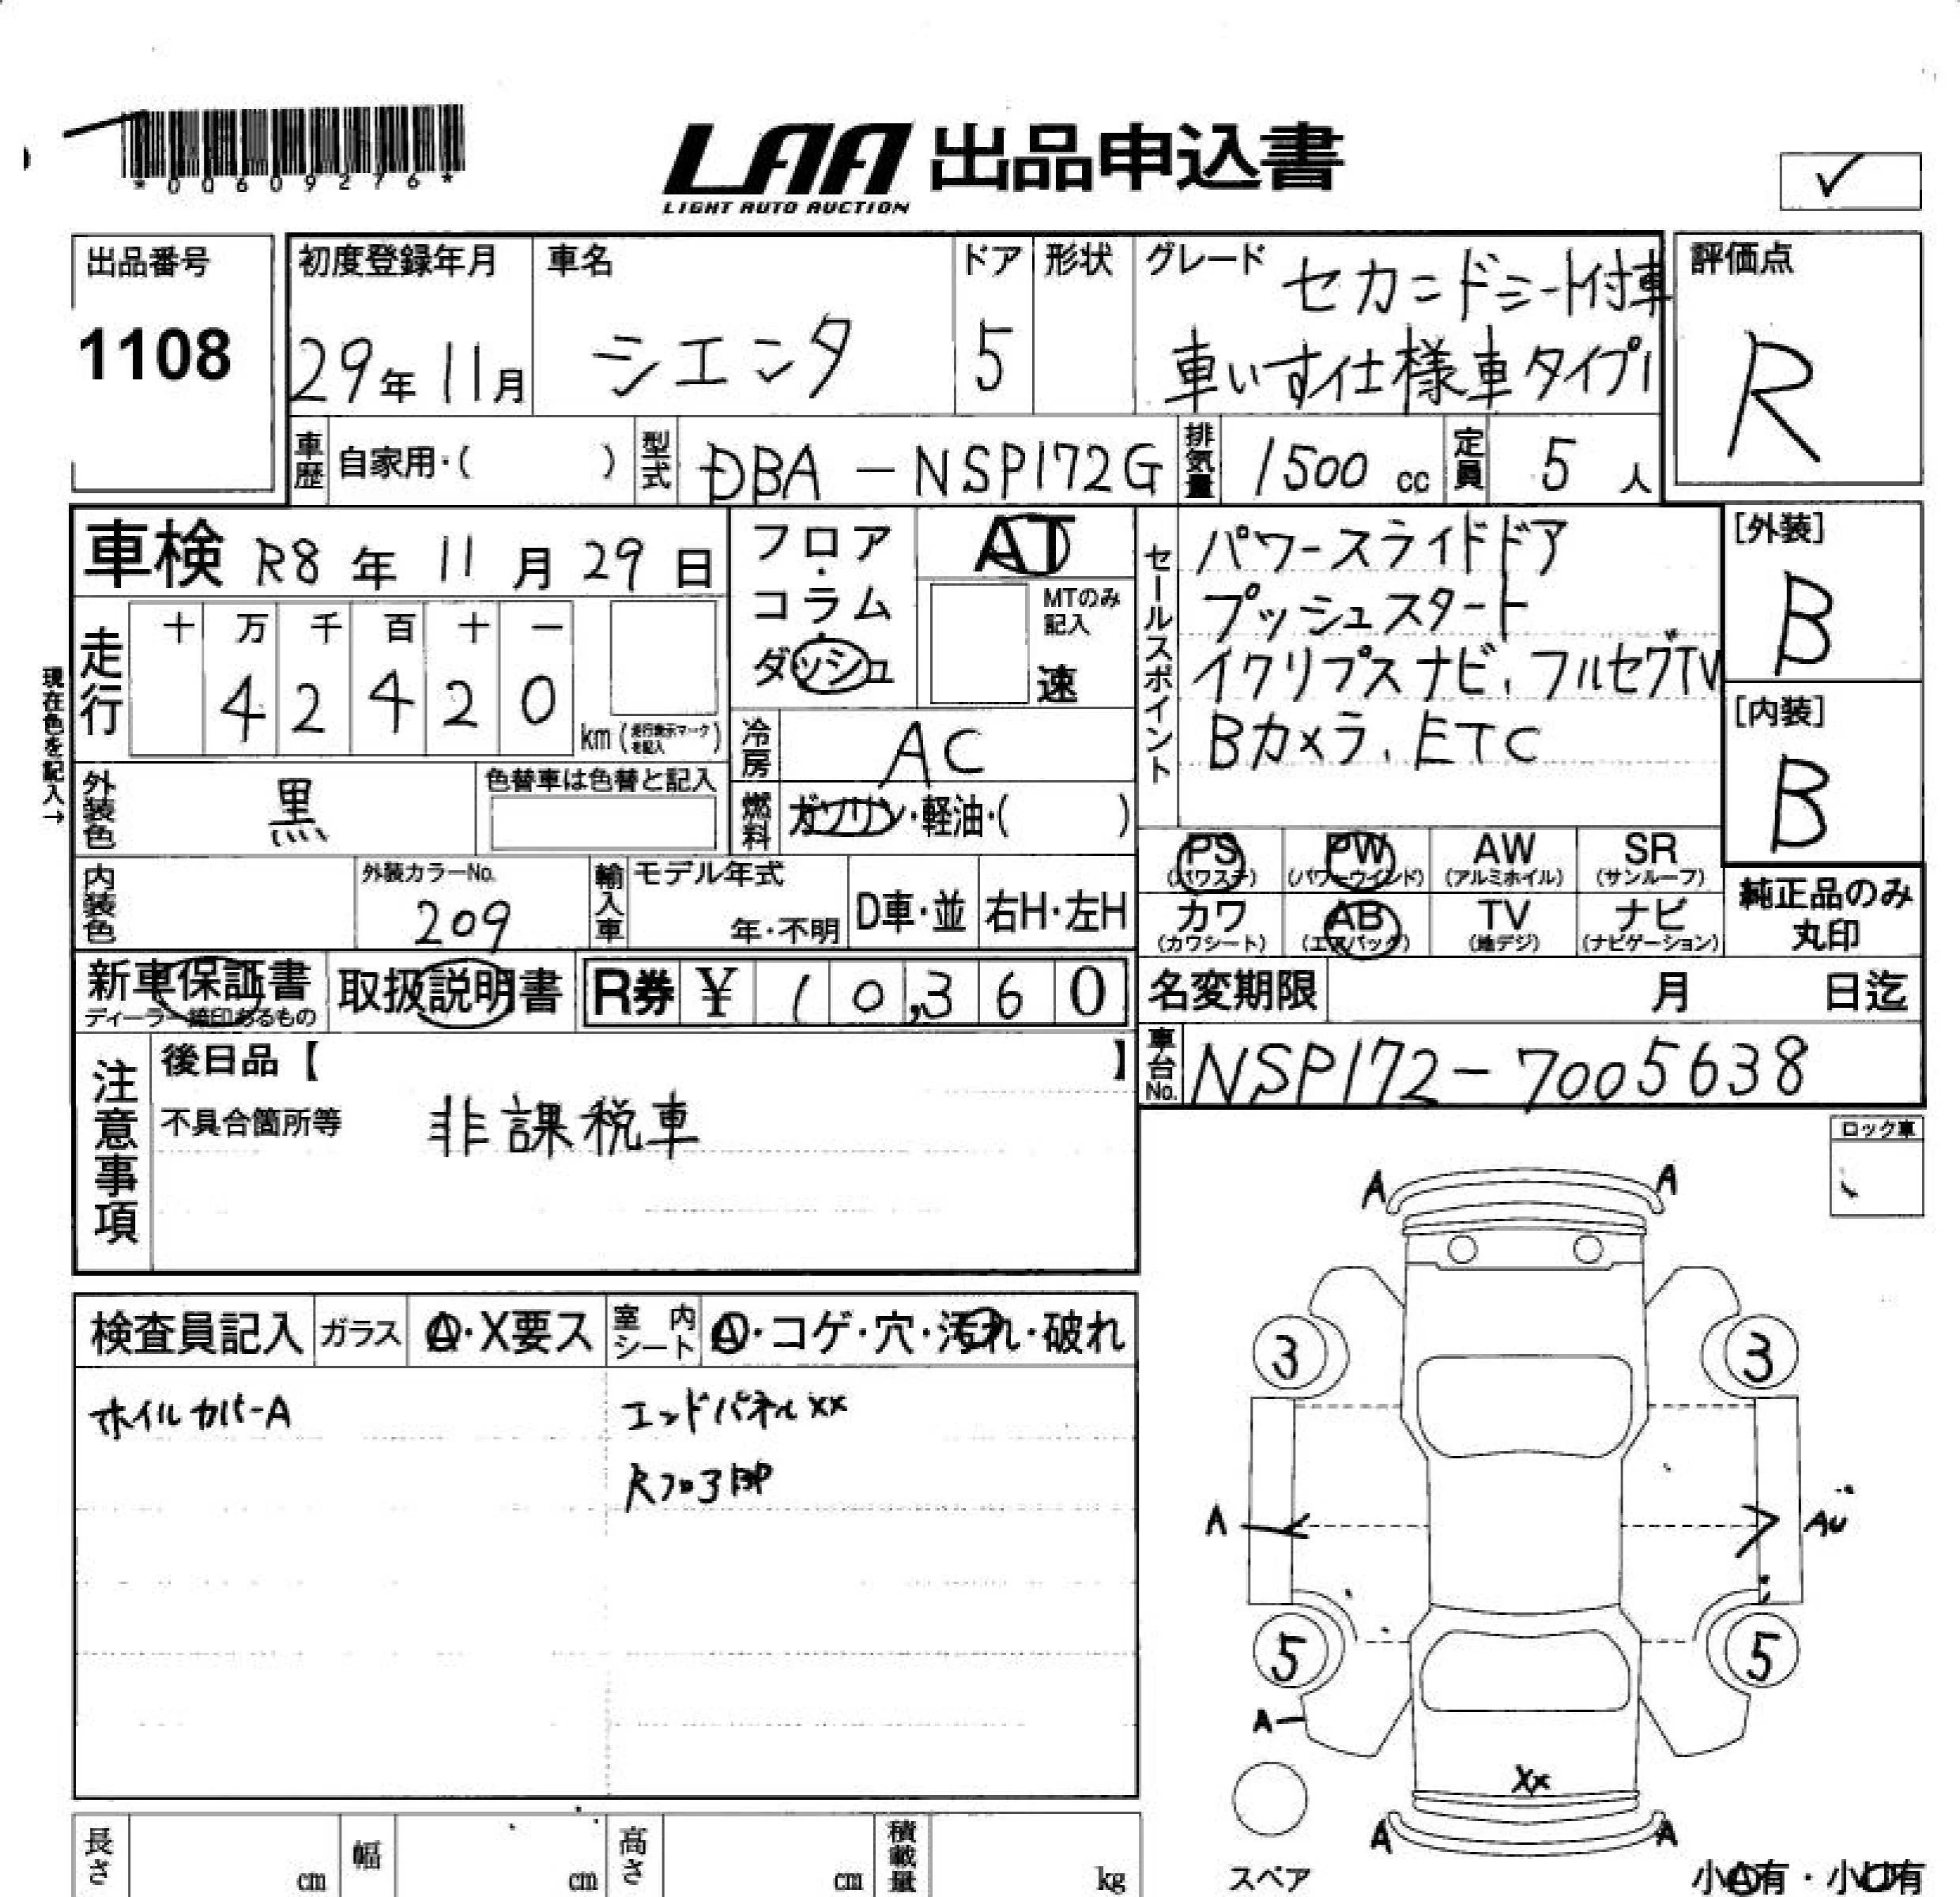 *00609276*
LAA 出品申込書
LIGHT AUTO AUCTION
✓
出品番号
1108
初度登録年月
29年11月
車名
シエンタ
ドア
5
形状
グレード
セカンドシート付車
車いす仕様車タイプI
評価点
R
車歴 自家用・( )
型式 DBA-NSP172G
排気量 1500 cc
定員 5 人
車検 R8年11月29日
フロア・コラム・ダッシュ
AT
MTのみ記入
速
走行 十 万 千 百 十 一
4 2 4 2 0
km (走行表示マークを記入)
現在色を記入→
外装色 黒
色替車は色替と記入
冷房 AC
燃料 ガソリン・軽油・( )
内装色
外装カラーNo.
209
輸入車
モデル年式
年・不明
D車・並
右H・左H
セールスポイント
パワースライドドア
プッシュスタート
イクリプスナビ、フルセグTV
Bカメラ、ETC
[外装]
B
[内装]
B
PS (パワステ)
PW (パワーウインド)
AW (アルミホイル)
SR (サンルーフ)
カワ (カワシート)
AB (エアバッグ)
TV (地デジ)
ナビ (ナビゲーション)
純正品のみ
丸印
新車保証書
ディーラー捺印あるもの
取扱説明書
R券 ¥ 10,360
名変期限 月 日迄
車台No. NSP172-7005638
注意事項
後日品【 】
不具合箇所等
非課税車
ロック車
検査員記入
ガラス A・X要ス
室内シート A・コゲ・穴・汚れ・破れ
ホイルカバーA
エンドパネルXX
Rフロア凹P
A A
3 3
A AU
5 5
A
XX
A A
スペア
小A有・小U有
長さ cm
幅 cm
高さ cm
積載量 kg